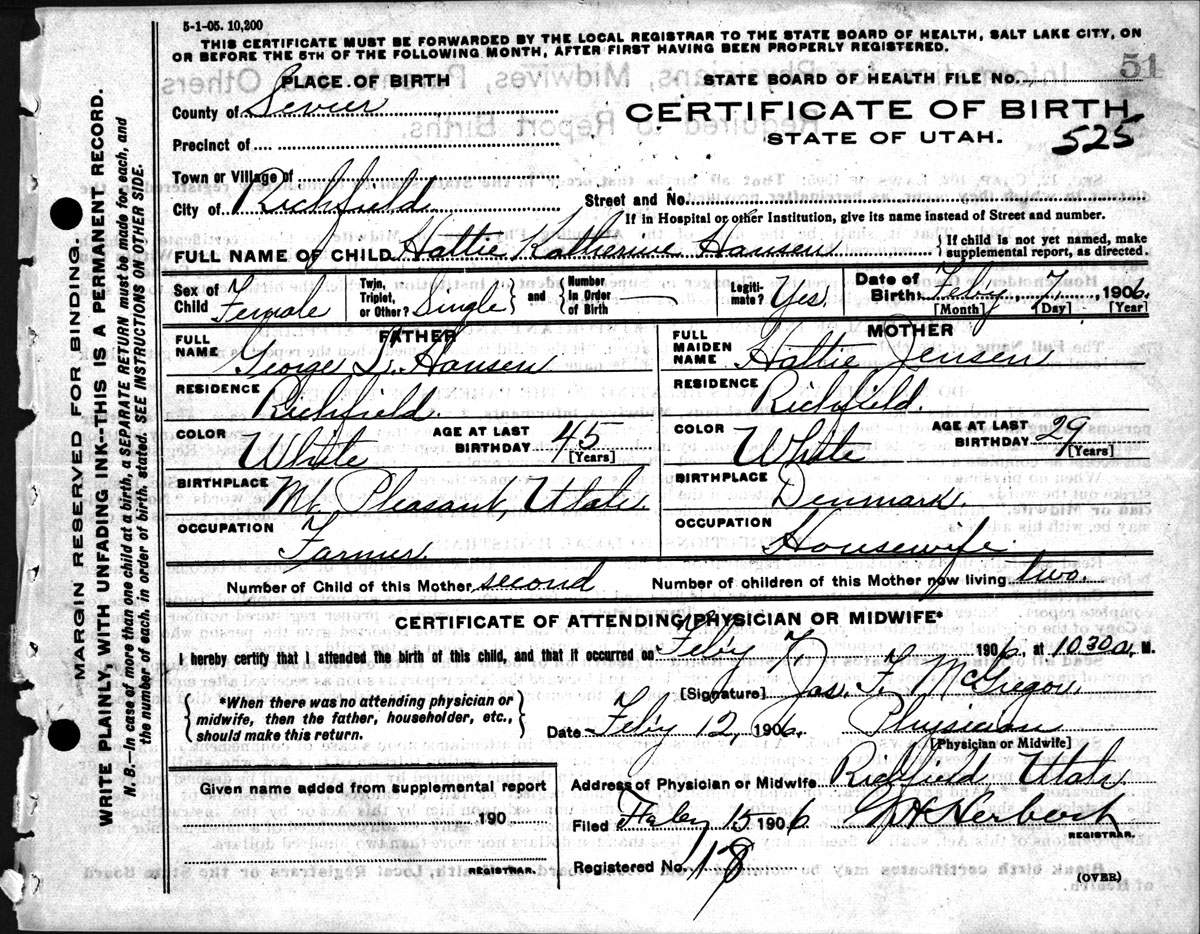 5-1-05. 10,200
THIS CERTIFICATE MUST BE FORWARDED BY THE LOCAL REGISTRAR TO THE STATE BOARD OF HEALTH, SALT LAKE CITY, ON
OR BEFORE THE 5TH OF THE FOLLOWING MONTH, AFTER FIRST HAVING BEEN PROPERLY REGISTERED.
PLACE OF BIRTH
STATE BOARD OF HEALTH FILE NO. 51
County of Sevier
CERTIFICATE OF BIRTH
STATE OF UTAH. 525
Precinct of
Town or Village of
City of Richfield Street and No.
If in Hospital or other Institution, give its name instead of Street and number.
FULL NAME OF CHILD Hattie Katherine Hansen { If child is not yet named, make
supplemental report, as directed.
Sex of Child Female Twin, Triplet, or Other? Single and Number In Order of Birth — Legiti-mate? Yes. Date of Birth: Feby 7, 1906.
[Month] [Day] [Year]
FATHER MOTHER
FULL NAME George Hansen FULL MAIDEN NAME Hattie Jensen
RESIDENCE Richfield. RESIDENCE Richfield.
COLOR White AGE AT LAST BIRTHDAY 45 [Years] COLOR White AGE AT LAST BIRTHDAY 29 [Years]
BIRTHPLACE Mt. Pleasant, Utah. BIRTHPLACE Denmark
OCCUPATION Farmer OCCUPATION Housewife.
Number of Child of this Mother second Number of children of this Mother now living two.
CERTIFICATE OF ATTENDING PHYSICIAN OR MIDWIFE*
I hereby certify that I attended the birth of this child, and that it occurred on Feby 7 1906, at 10.30 a. M.
*When there was no attending physician or
midwife, then the father, householder, etc.,
should make this return.
[Signature] Jas. F. McGregor
Date Feby 12, 1906. Physician
[Physician or Midwife]
Given name added from supplemental report
190
REGISTRAR.
Address of Physician or Midwife Richfield Utah
Filed Feby 15 1906
REGISTRAR.
Registered No. 18
(OVER)
MARGIN RESERVED FOR BINDING.
WRITE PLAINLY, WITH UNFADING INK--THIS IS A PERMANENT RECORD.
N. B.—In case of more than one child at a birth, a SEPARATE RETURN must be made for each, and
the number of each, in order of birth, stated. SEE INSTRUCTIONS ON OTHER SIDE.